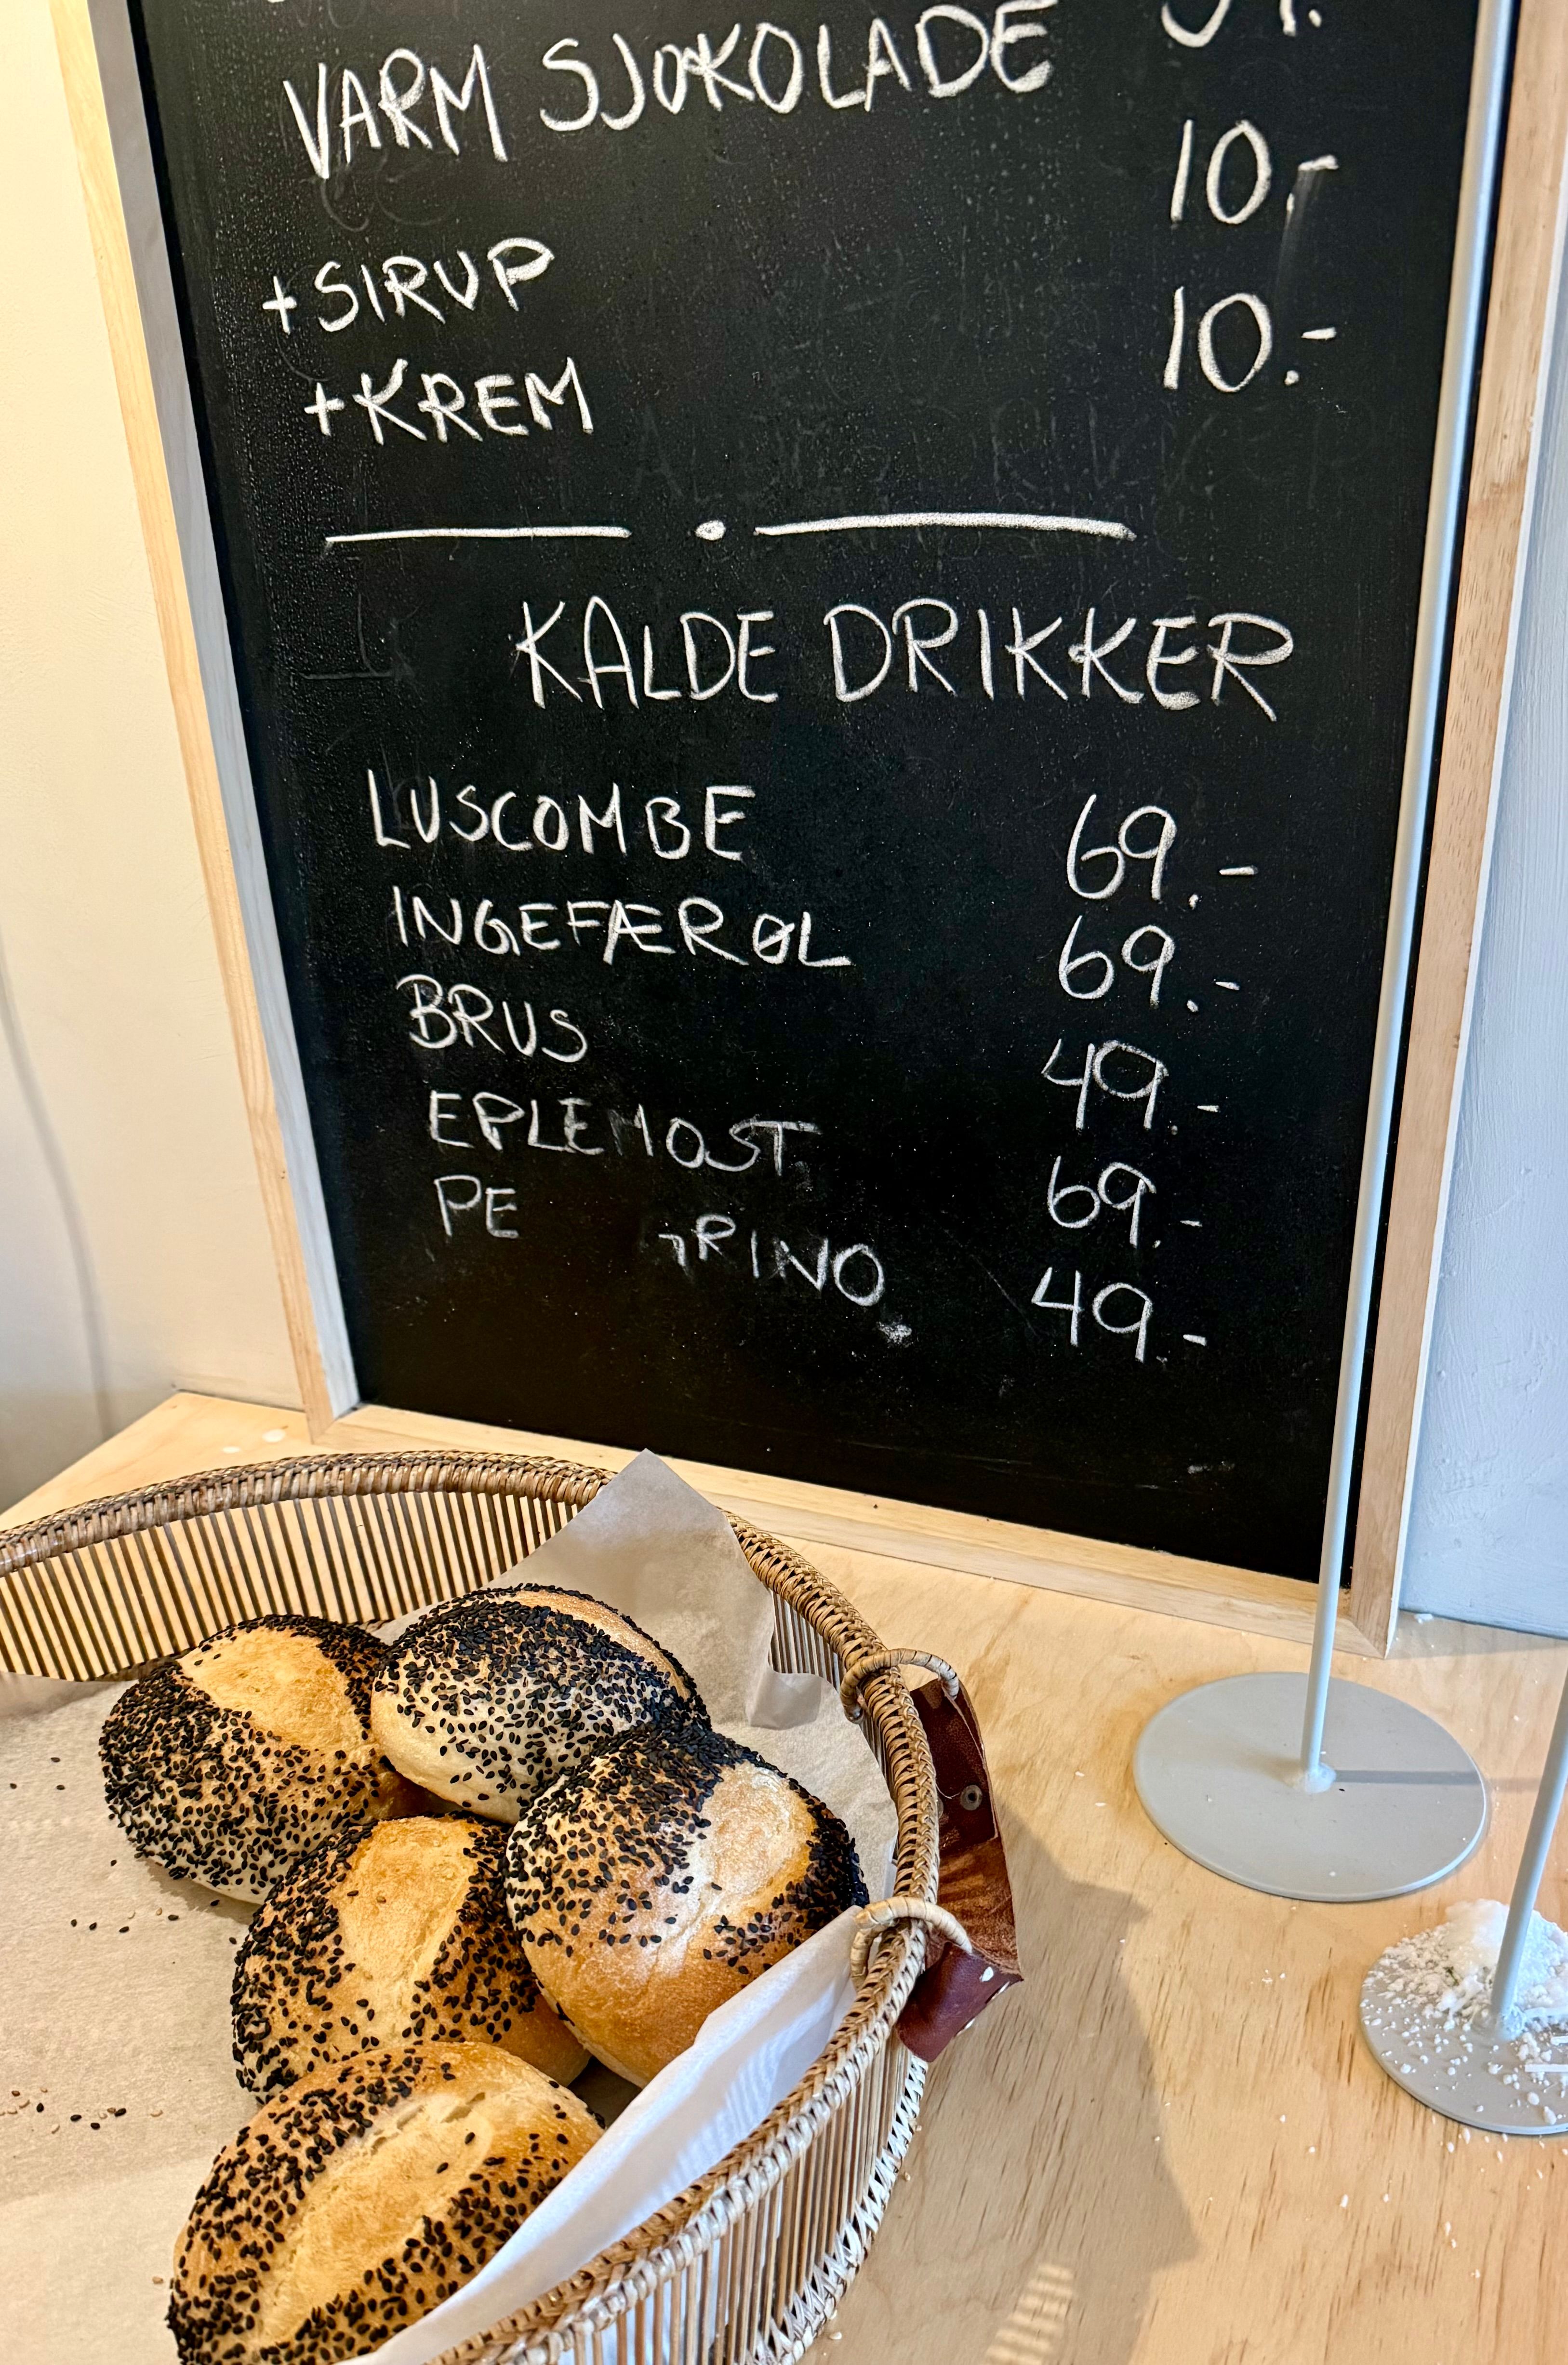 VARM SJOKOLADE
+SIRUP 10.-
+KREM 10.-
KALDE DRIKKER
LUSCOMBE 69.-
INGEFÆRØL 69.-
BRUS 49.-
EPLEMOST 69.-
PE RINO 49.-